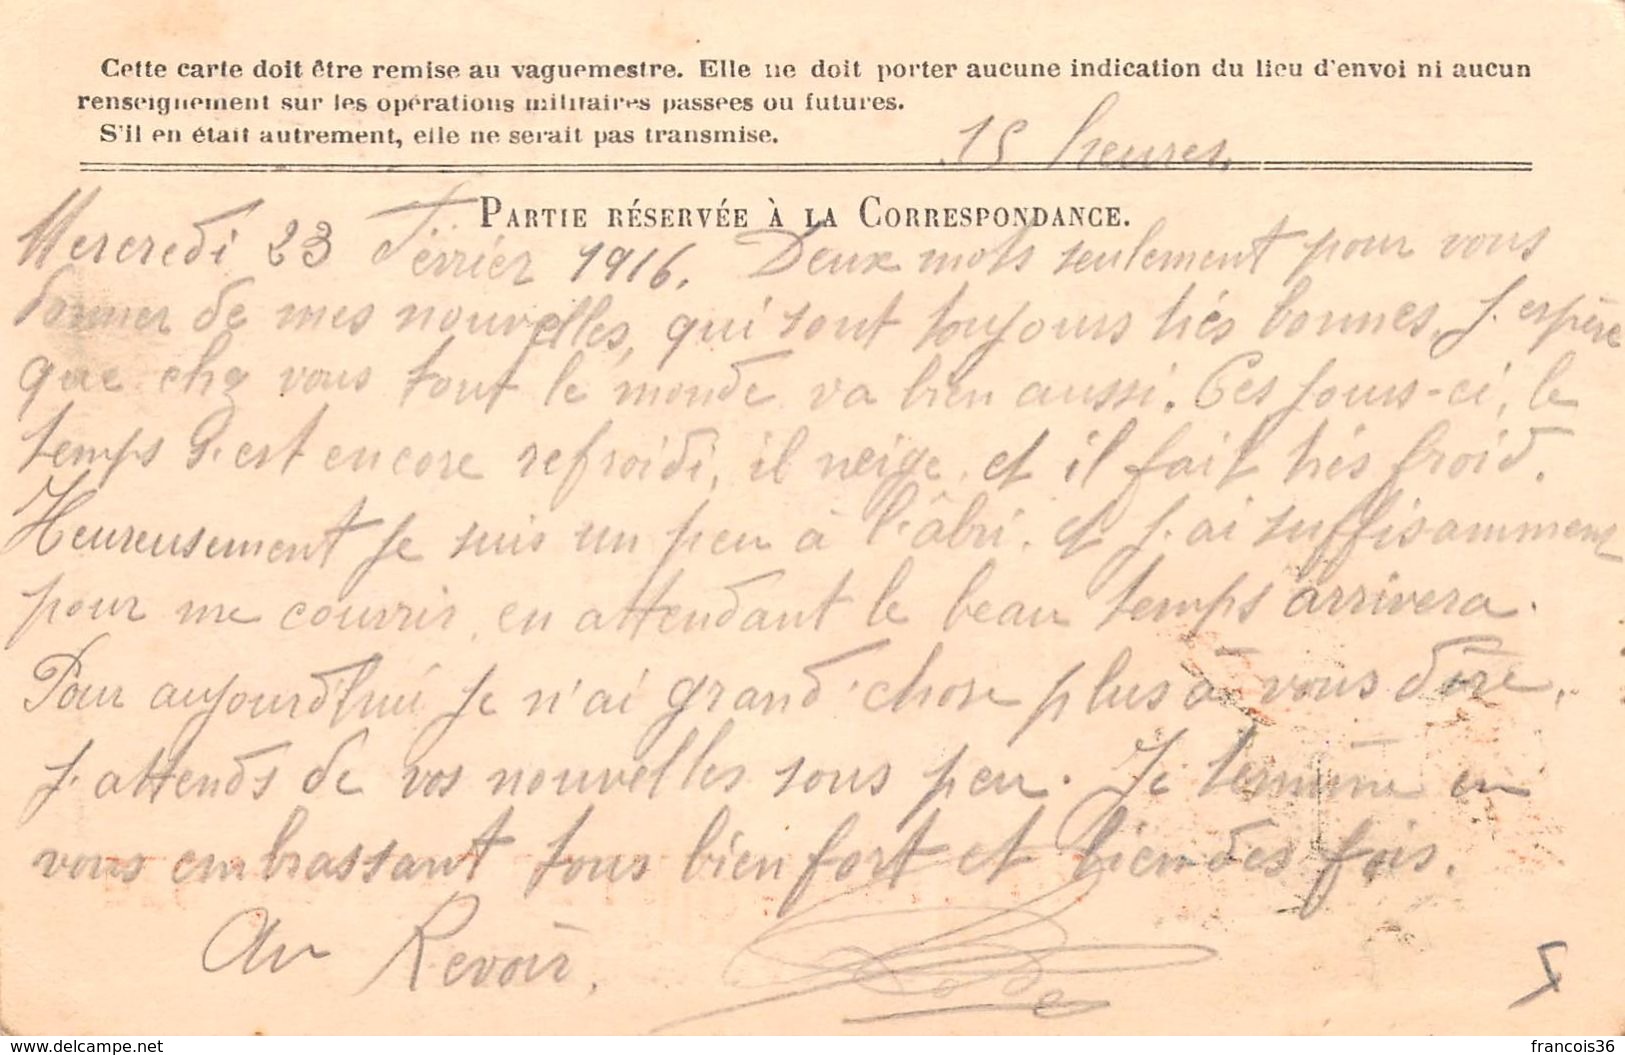 Cette carte doit être remise au vaguemestre. Elle ne doit porter aucune indication du lieu d'envoi ni aucun
renseignement sur les opérations militaires passées ou futures.
S'il en était autrement, elle ne serait pas transmise.
15 heures.
PARTIE RÉSERVÉE À LA CORRESPONDANCE.
Mercredi 23 Février 1916. Deux mots seulement pour vous
donner de mes nouvelles, qui sont toujours très bonnes. J'espère
que chez vous tout le monde va bien aussi. Ces jours-ci, le
temps s'est encore refroidi, il neige, et il fait très froid.
Heureusement je suis un peu à l'âbri, et j'ai suffisamment
pour me couvrir, en attendant le beau temps arrivera.
Pour aujourd'hui je n'ai grand'chose plus à vous dire,
j'attends de vos nouvelles sous peu. Je termine en
vous embrassant tous bien fort et bien des fois.
Au Revoir.
5
www.delcampe.net
francois36